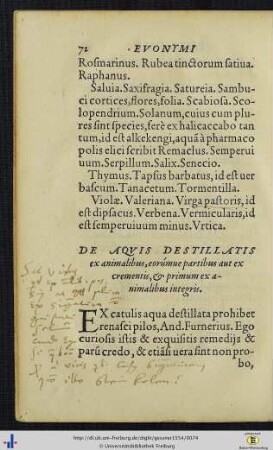 72 EVONYMI
Rosmarinus. Rubea tinctorum satiua.
Raphanus.
Saluia. Saxifragia. Satureia. Sambu-
ci cortices, flores, folia. Scabiosa. Sco-
lopendrium. Solanum, cuius cum plu-
res sint species, ferè ex halicaccabo tan
tum, id est alkekengi, aquā à pharmaco
polis elici scribit Remaclus. Semperui
uum. Serpillum. Salix. Senecio.
Thymus. Tapsus barbatus, id est uer
bascum. Tanacetum. Tormentilla.
Violæ. Valeriana. Virga pastoris, id
est dipsacus. Verbena. Vermicularis, id
est semperuiuum minus. Vrtica.
DE AQVIS DESTILLATIS
ex animalibus, eorúmue partibus aut ex
crementis, & primum ex a-
nimalibus integris.
EX catulis aqua destillata prohibet
renasci pilos, And. Furnerius. Ego
curiosis istis & exquisitis remedijs &
parū credo, & etiāsi uera sint non pro-
bo,
http://dl.ub.uni-freiburg.de/diglit/gessner1554/0074
© Universitätsbibliothek Freiburg